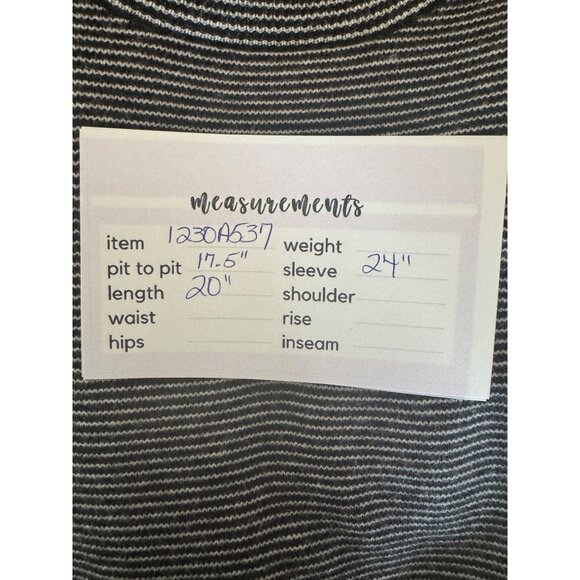 measurements
item 1230A537 weight
pit to pit 17.5" sleeve 24"
length 20" shoulder
waist rise
hips inseam